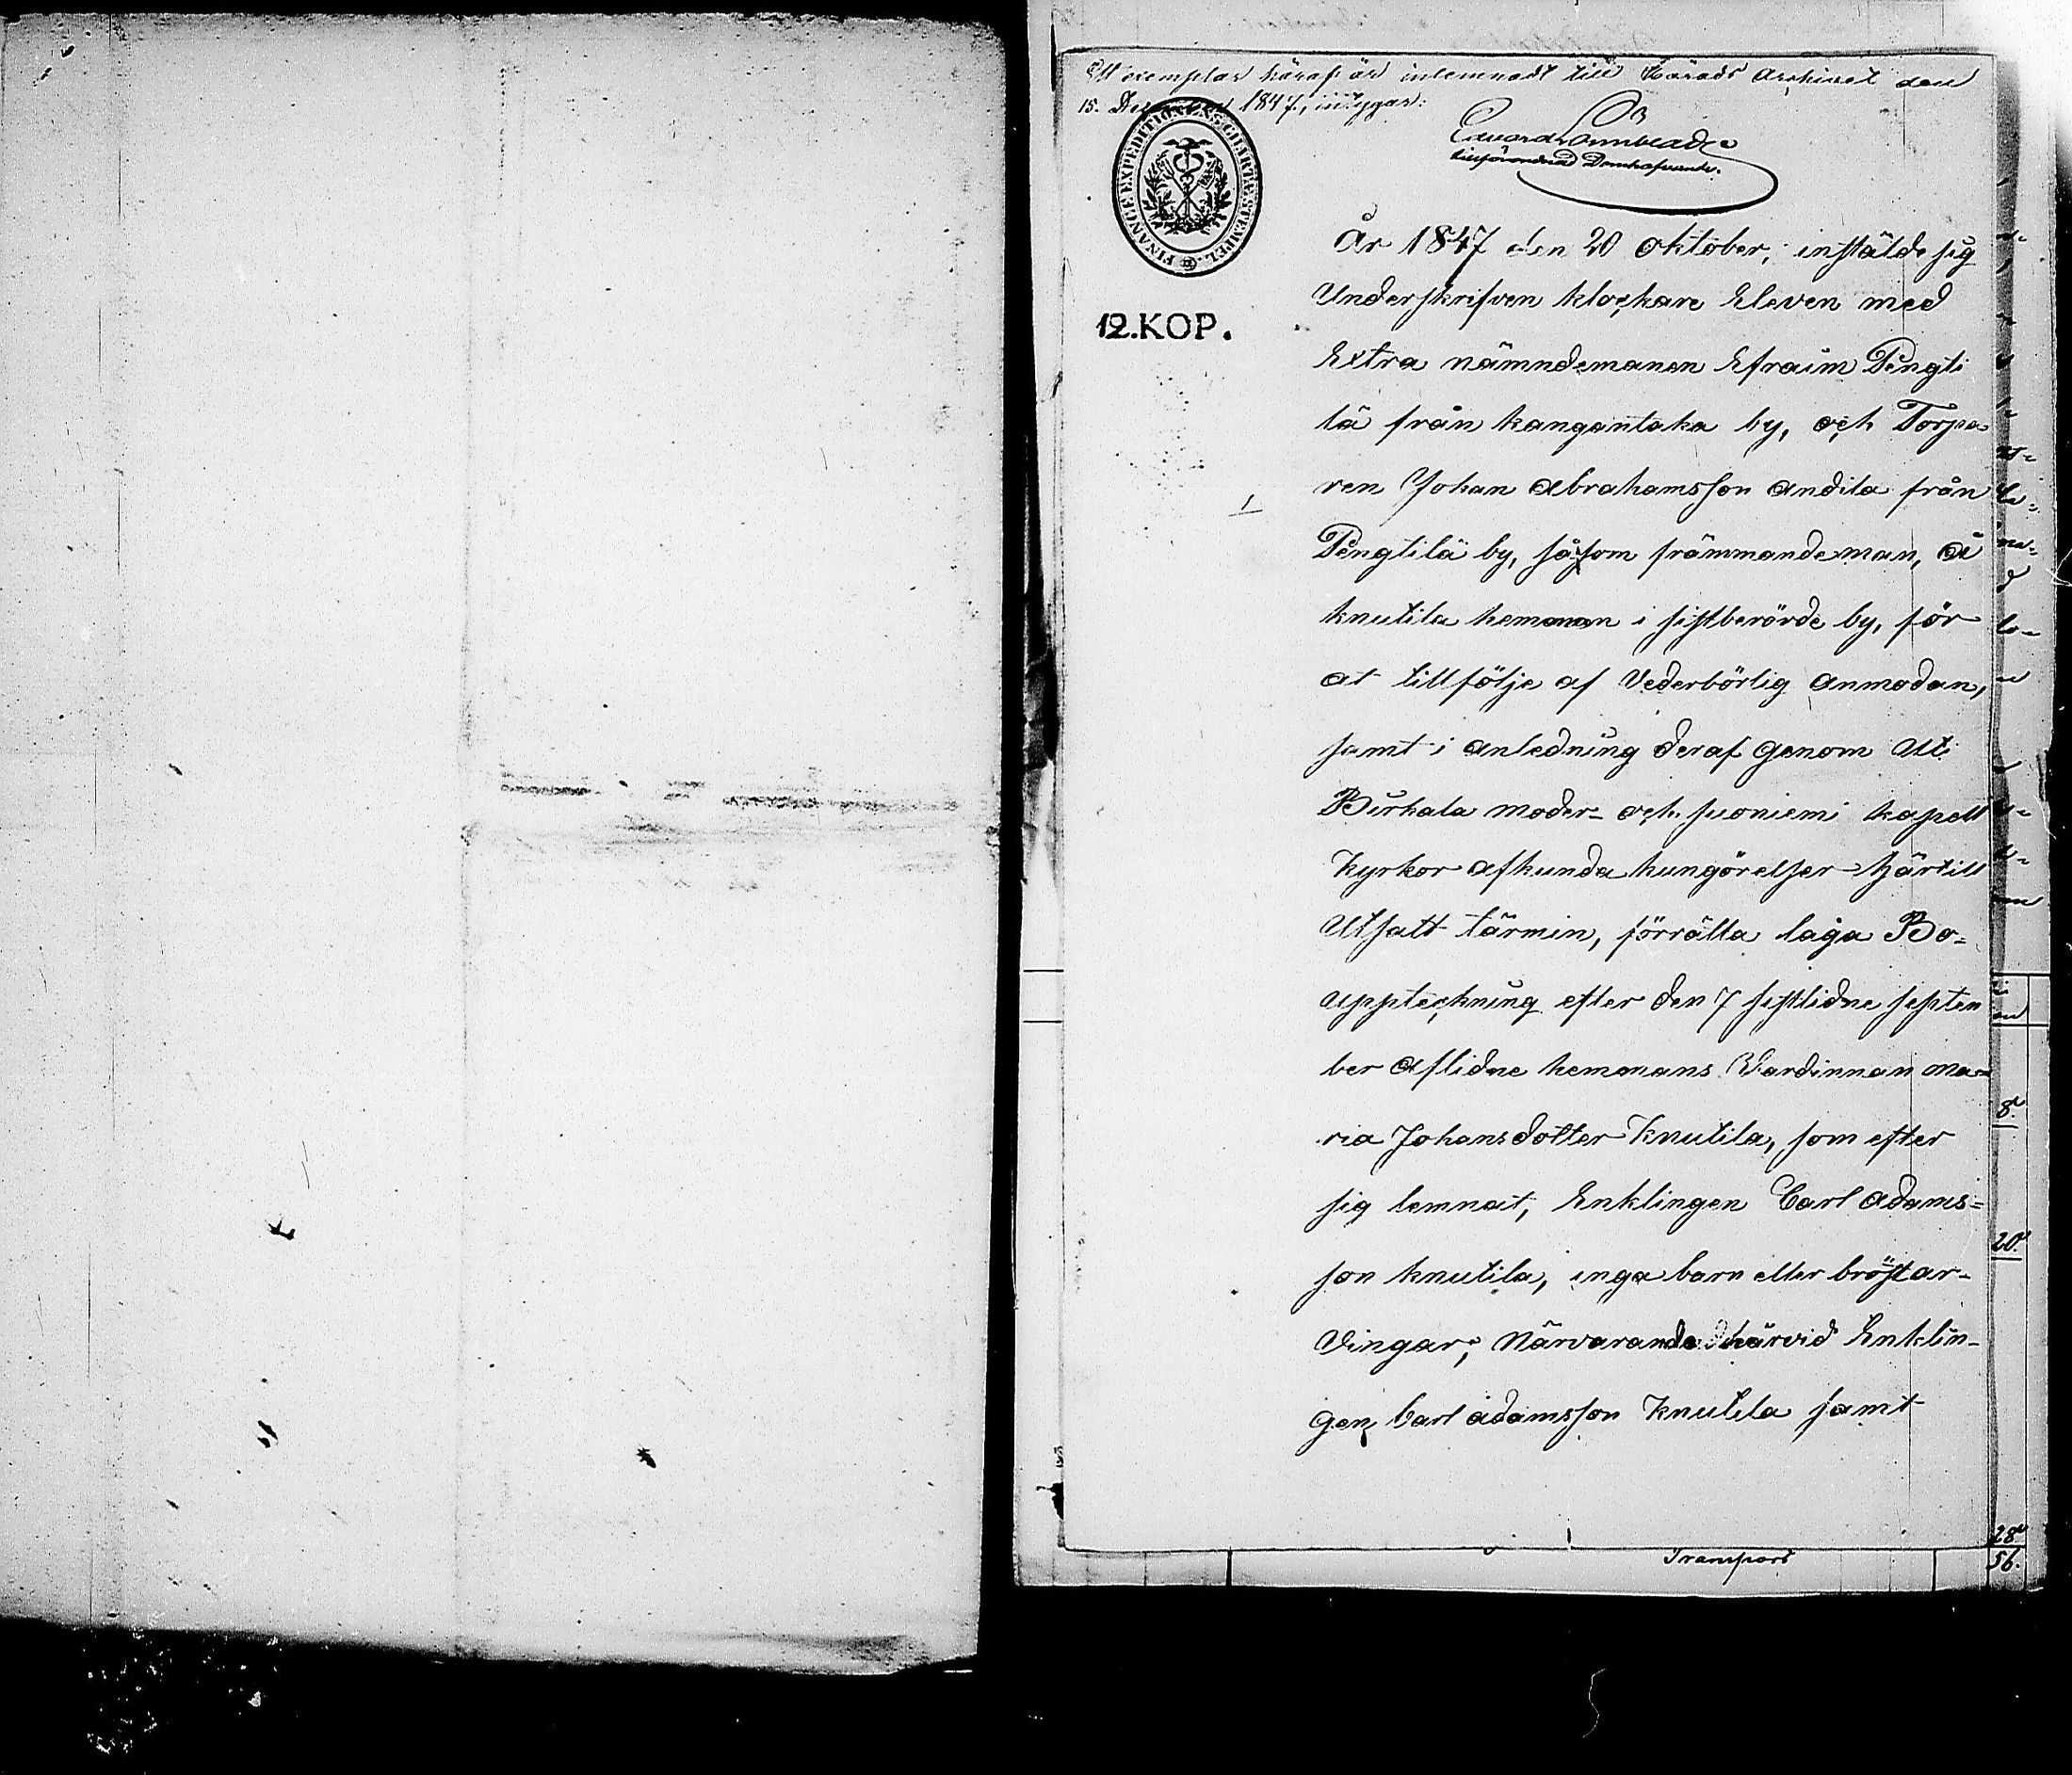 Ett exemplar häraf är inlemnadt till Härads Archivet den
15. December 1847, intygar:
Edvard Lönnblad
tillförordnad Domhafvande.
FINANCE EXPEDITIONENS CHARTÆ STEMPEL
12.KOP.
År 1847 den 20 Oktober, instälde sig
Underskrifven klockare Eleven med
Extra nämndemanen Efraim Pengti
lä från kangantaka by, och Torpa
ren Johan Abrahamsson Andila från
1
Pengtilä by, såsom främmande man, å
knutila hemman i sistberörde by, för
at tillfölje af Vederbörlig anmodan,
samt i anledning deraf genom uti
Birkala moder- och suoniemi kapell
kyrkor afkunda kungörelser härtill
Utsatt tärmin, förrätta laga Bo-
uppteckning efter den 7 sistlidne septem
ber Aflidne hemmans Värdinnan Ma-
ria Johansdotter Knutila, som efter
sig lemnat, Enklingen Carl Adams-
son knutila, inga barn eller bröstar-
vingar; Närvarande härvid Enklin-
gen Carl adamsson Knutila samt
8.
20.
28
Transport
56.